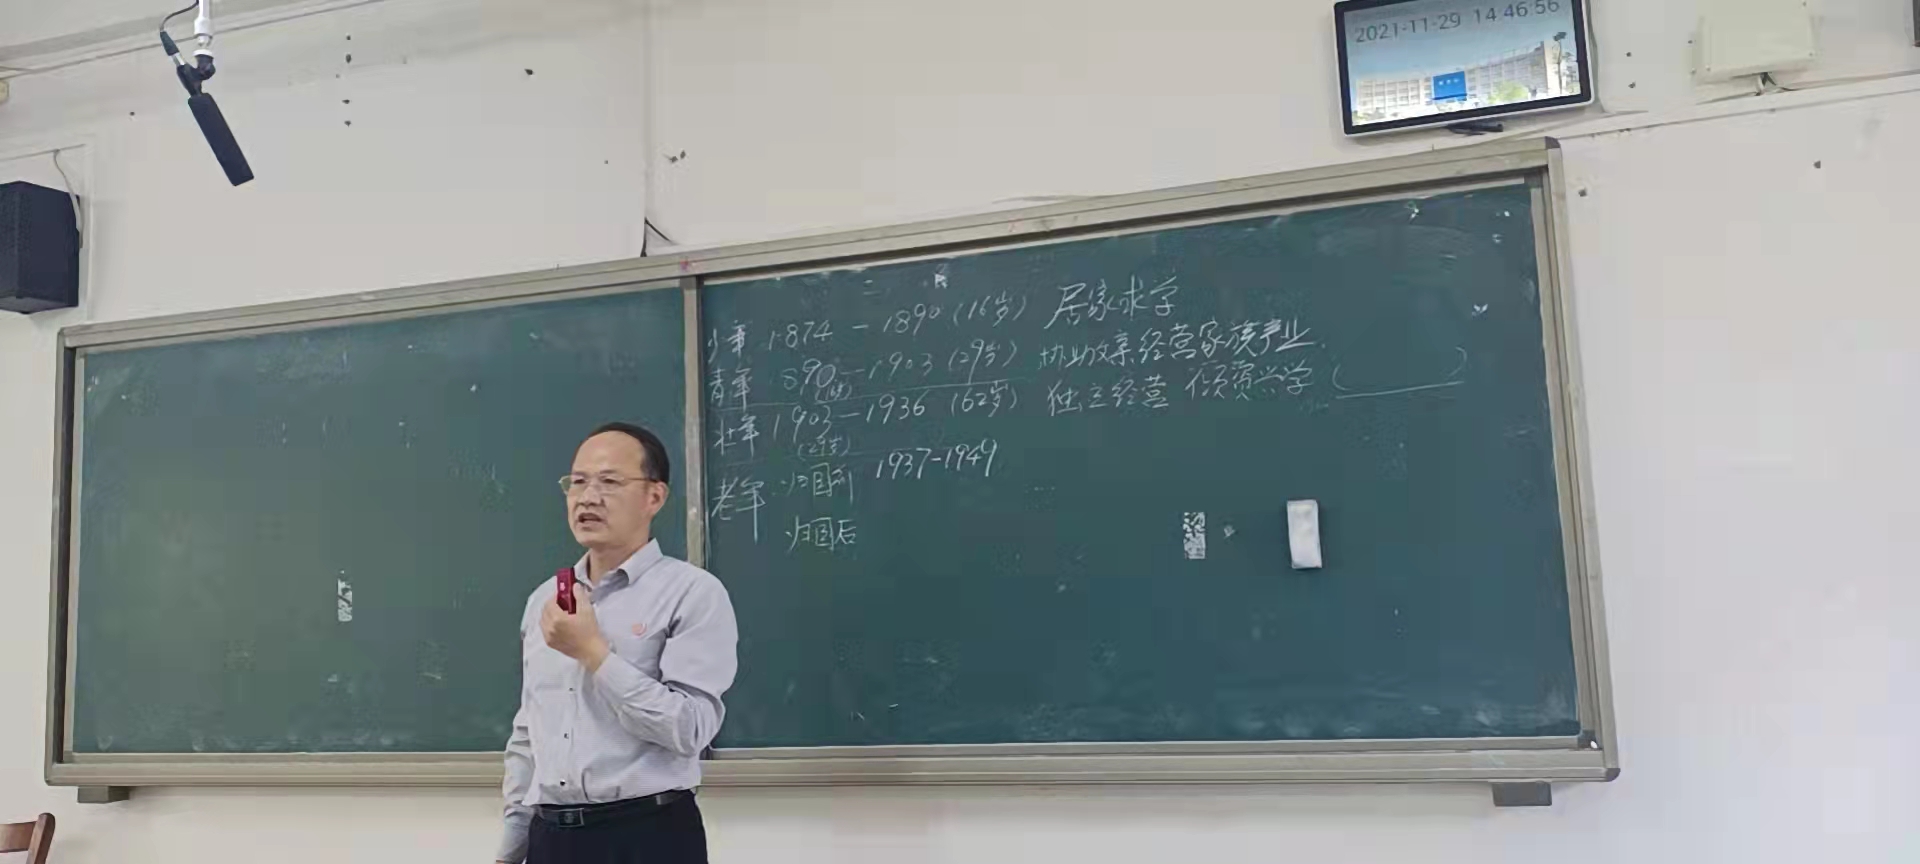 2021-11-29 14:46:56
少年 1874 - 1890 (16岁) 居家求学
青年 1890 - 1903 (29岁) 协助父亲经营家族产业
壮年 1903 - 1936 (62岁) 独立经营 倾资兴学 ( )
(29岁)
老年 归国前 1937-1949
归国后